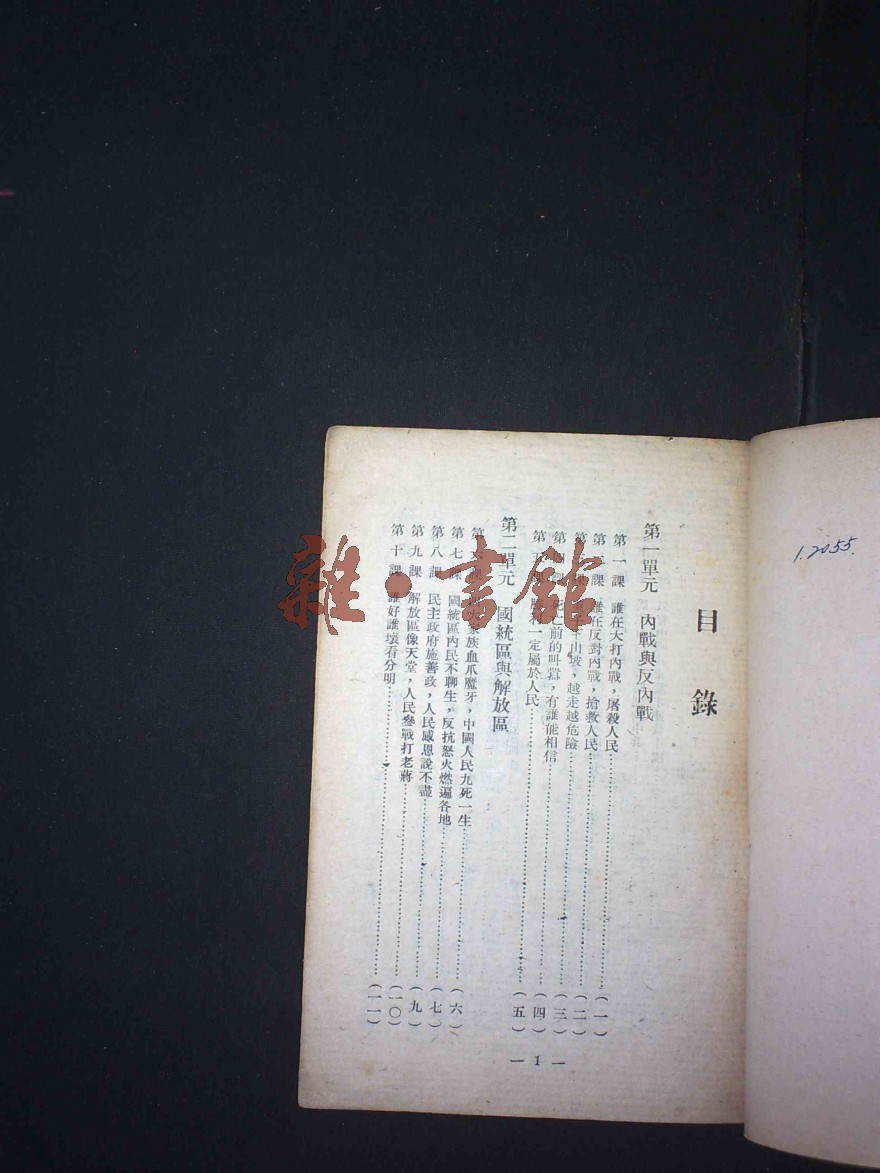 目錄
第一單元 內戰與反內戰
第一課 誰在大打內戰，屠殺人民……（一）
第二課 誰在反對內戰，搶救人民……（二）
山坡，越走越危險……（三）
第四課 死亡前的叫囂，有誰能相信……（四）
第五課 勝利一定屬於人民……（五）
第二單元 國統區與解放區
第六課 大家族血爪魔牙，中國人民九死一生……（六）
第七課 國統區內民不聊生，反抗怒火燃遍各地……（七）
第八課 民主政府施善政，人民感恩說不盡……（九）
第九課 解放區像天堂，人民參戰打老蔣……（一〇）
第十課 誰好誰壞看分明……（一一）
— 1 —
1.2055.
雜·書館